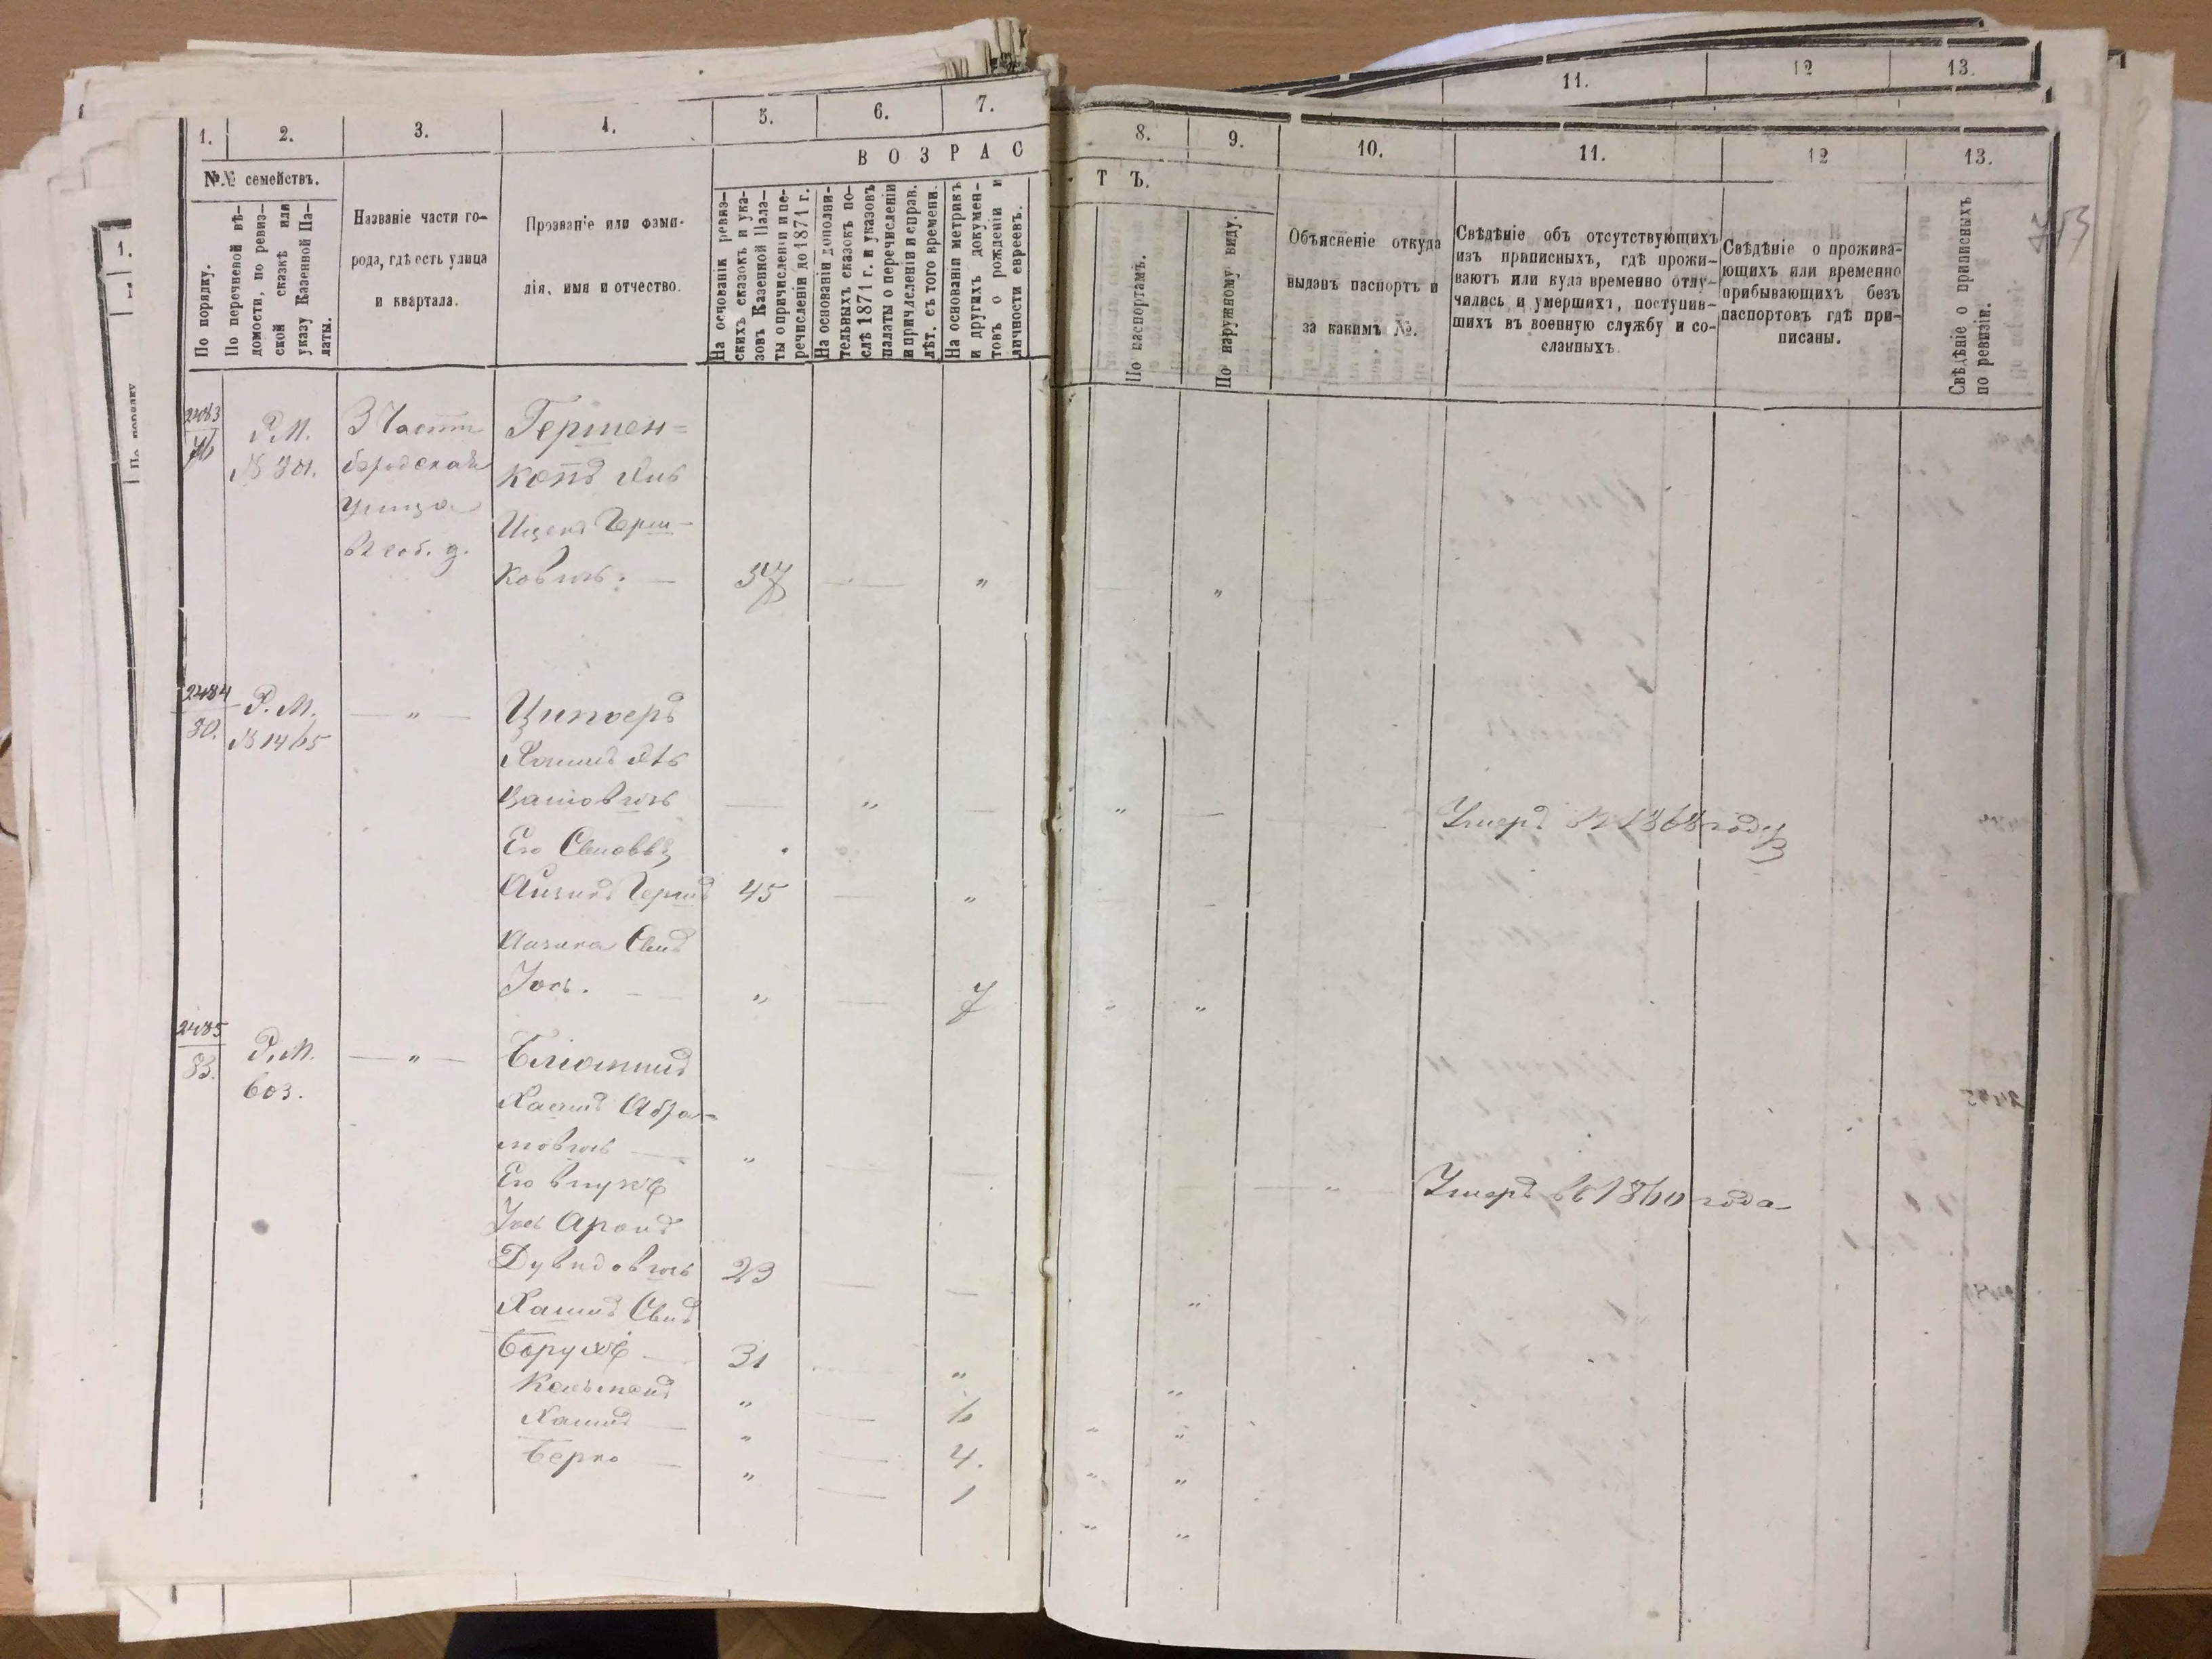 1.
2.
3.
4.
5.
6.
7.
8.
9.
10.
11.
12
13.
11.
12
13.
1.
№№ семействъ.
По порядку.
По перечневой вѣ-
домости, по ревиз-
ской сказкѣ или
указу Казенной Па-
латы.
Названіе части го-
рода, гдѣ есть улица
и квартала.
Прозваніе или фами-
лія, имя и отчество.
ВОЗРАС
ТЪ.
На основаніи ревиз-
скихъ сказокъ и ука-
зовъ Казенной Пала-
ты о причисленіи и пе-
речисленіи до 1871 г.
На основаніи дополни-
тельныхъ сказокъ по-
слѣ 1871 г. и указовъ
палаты о перечисленіи
и причисленіи и справ.
лѣт. съ того времени.
На основаніи метрикъ
и другихъ докумен-
товъ о рожденіи и
личности евреевъ.
По паспортамъ.
По наружному виду.
Объясненіе откуда
выданъ паспортъ и
за какимъ №.
Свѣдѣніе объ отсутствующихъ
изъ приписныхъ, гдѣ прожи-
ваютъ или куда временно отлу-
чились и умершихъ, поступив-
шихъ въ военную службу и со-
сланныхъ.
Свѣдѣніе о прожива-
ющихъ или временно
прибывающихъ безъ
паспортовъ гдѣ при-
писаны.
Свѣдѣніе о приписныхъ
по ревизіи.
Р.М.
3 Части
Гершен-
Городская
улица
въ соб. д.
Ицекъ Герш-
ковичъ. — "
2484
80.
Р.М.
№ 1465
— " —
Циперъ
Его Сыновья
Айзикъ Гершъ 45 — "
Айзика Сынъ
Іось. " — 7
Умеръ въ 1868 году
2485
83.
Р.М.
603.
— " —
Хаимъ Абра-
мовичъ — "
Его внукъ
Іось Аронъ
Дувидовичъ 23 —
Хаима Сынъ
Борухъ — 31 "
Кельманъ " 6
Хаимъ — " 4.
Берко — " 1
Умеръ въ 1860 года